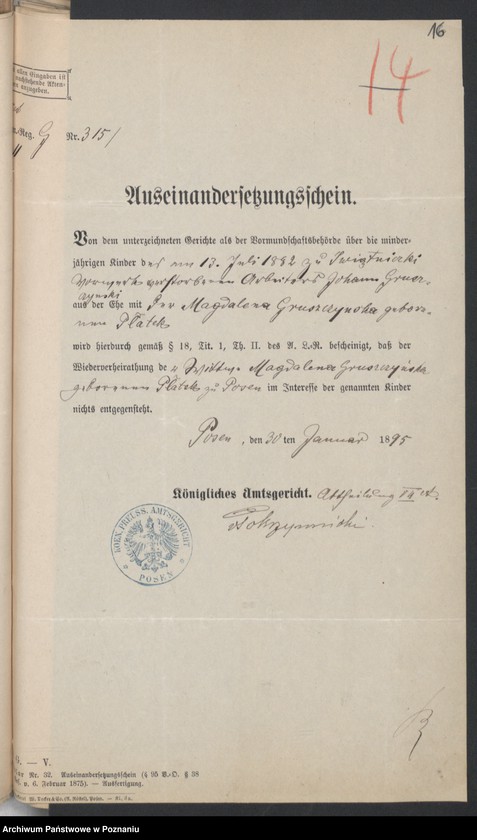 16
14
allen Eingaben ist
nachstehende Akten-
anzugeben.
-Reg. G Nr. 315/
Auseinandersetzungsschein.
Von dem unterzeichneten Gerichte als der Vormundschaftsbehörde über die minder-
jährigen Kinder des am 13. Juli 1892 zu
Vorwerk verstorbenen Arbeiters Johann Grusz-
czynski
aus der Ehe mit der Magdalena Gruszczynska gebore-
nen Platek
wird hierdurch gemäß § 18, Tit. 1, Th. II. des A. L.-R. bescheinigt, daß der
Wiederverheirathung der Wittwe Magdalena Gruszczynska
geborenen Platek zu Posen im Interesse der genannten Kinder
nichts entgegensteht.
Posen, den 30 ten Januar 1895
Königliches Amtsgericht. Abtheilung
KOEN. PREUSS. AMTSGERICHT
* POSEN *
G. — V.
Nr. 32. Auseinandersetzungsschein (§ 95 V.-O. § 38
v. 6. Februar 1875). — Ausfertigung.
W. Decker & Co. (A. Röstel), Posen.
Archiwum Państwowe w Poznaniu